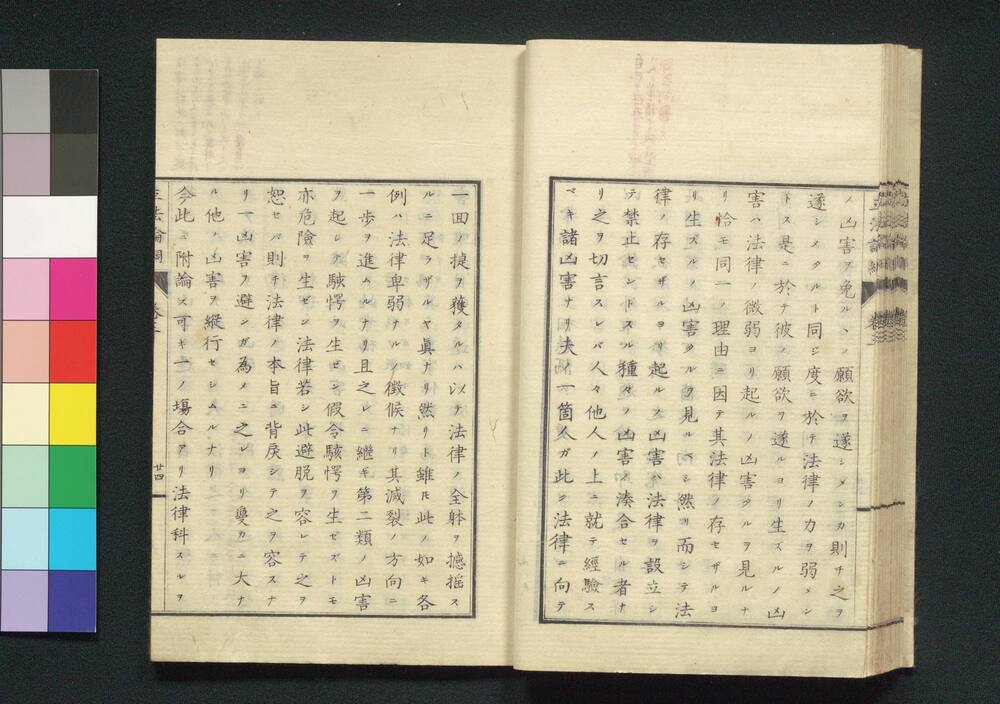 ノ凶害ヲ免ルヽノ願欲ヲ遂シメンカ則チ之ヲ
遂シメタルト同ジ度ニ於テ法律ノ力ヲ弱メン
トス是ニ於テ彼ノ願欲ヲ遂ルヨリ生ズルノ凶
害ハ法律ノ微弱ヨリ起ルノ凶害タルヲ見ルナ
リ恰モ同一ノ理由ニ因テ其法律ノ存セザルヨ
リ生ズルノ凶害タルヲ見ルベシ然リ而シテ法
律ノ存セザルヨリ起ルノ凶害ハ法律ヲ設立シ
テ禁止セントスル種々ノ凶害ノ湊合セル者ナ
リ之ヲ切言スレバ人々他人ノ上ニ就テ經驗ス
ベキ諸凶害ナリ夫一箇人ガ此ク法律ニ向テ
一回ノ捷ヲ獲タルハ以テ法律ノ全躰ヲ撼揺ス
ルニ足ラザルヤ眞ナリ然リト雖𪜈此ノ如キ各
例ハ法律卑弱ナルノ徴候ナリ其滅裂ノ方向ニ
一歩ヲ進ムルナリ且之レニ繼ギ第二類ノ凶害
ヲ起シテ駭愕ヲ生ゼシ假令駭愕ヲ生ゼズトモ
亦危險ヲ生ゼシ法律若シ此避脱ヲ容レテ之ヲ
恕セバ則チ法律ノ本旨ニ背戻シテ之ヲ容スナ
リ一凶害ヲ避シガ為メニ之レヨリ更カニ大ナ
ル他ノ凶害ヲ縦行セシムルナリ
今此ニ附論ス可キ一ノ塲合アリ法律科スルヲ
立法論綱 卷二 廿四